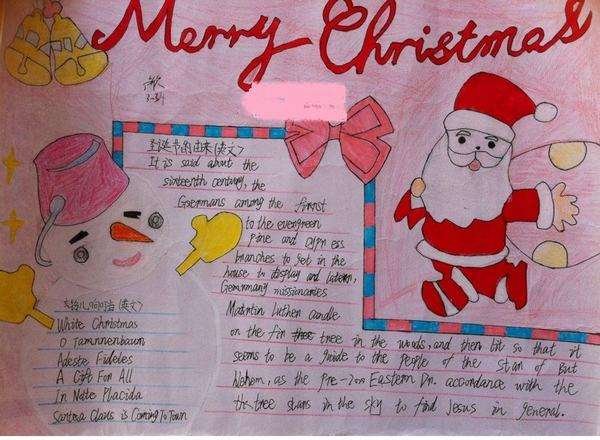 Merry Christmas
圣诞节的由来(英文)
It is said about the
sixteenth century, the
Germans among the first
to the evergreen
Pine and cypr ess
branches to set in the
house in display and latern,
Germmany missionaries
Maintin Luther candle
on the fir tree in the woods, and then lit so that it
seems to be a guide to the people of the stan of But
as the Pre-Eastern accordance with the
tree stars in the sky to find Jesus in general.
(英文)
White Christmas
O Tannnenbaum
Adeste Fideles
A Gift For All
In Notte Placida
Santosa Claus is Coming To Town